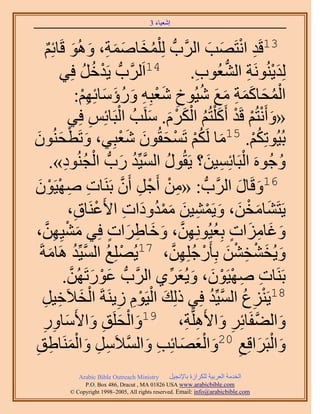 إشعياء 3
13قَدِ انْتَصَبَ الرَّبُّ لِلْمُخَاصَمَةِ، وَهُوَ قَائِمٌ
لِدَيْنُونَةِ الشُّعُوبِ. 14اَلرَّبُّ يَدْخُلُ فِي
الْمُحَاكَمَةِ مَعَ شُيُوخِ شَعْبِهِ وَرُؤَسَائِهِمْ:
«وَأَنْتُمْ قَدْ أَكَلْتُمُ الْكَرْمَ. سَلَبُ الْبَائِسِ فِي
بُيُوتِكُمْ. 15مَا لَكُمْ تَسْحَقُونَ شَعْبِي، وَتَطْحَنُونَ
وُجُوهَ الْبَائِسِينَ؟ يَقُولُ السَّيِّدُ رَبُّ الْجُنُودِ».
16وَقَالَ الرَّبُّ: «مِنْ أَجْلِ أَنَّ بَنَاتِ صِهْيَوْنَ
يَتَشَامَخْنَ، وَيَمْشِينَ مَمْدُودَاتِ الأَعْنَاقِ،
وَغَامِزَاتٍ بِعُيُونِهِنَّ، وَخَاطِرَاتٍ فِي مَشْيِهِنَّ،
وَيُخَشْخِشْنَ بِأَرْجُلِهِنَّ، 17يُصْلِعُ السَّيِّدُ هَامَةَ
بَنَاتِ صِهْيَوْنَ، وَيُعَرِّي الرَّبُّ عَوْرَتَهُنَّ.
18يَنْزِعُ السَّيِّدُ فِي ذلِكَ الْيَوْمِ زِينَةَ الْخَلاَخِيلِ
وَالضَّفَائِرِ وَالأَهِلَّةِ، 19وَالْحَلَقِ وَالأَسَاوِرِ
وَالْبَرَاقِعِ 20وَالْعَصَائِبِ وَالسَّلاَسِلِ وَالْمَنَاطِقِ
Arabic Bible Outreach Ministry الخدمة العربية للكرازة بالإنجيل
P.O. Box 486, Dracut , MA 01826 USA www.arabicbible.com
© Copyright 1998-2005, All rights reserved. Email: info@arabicbible.com